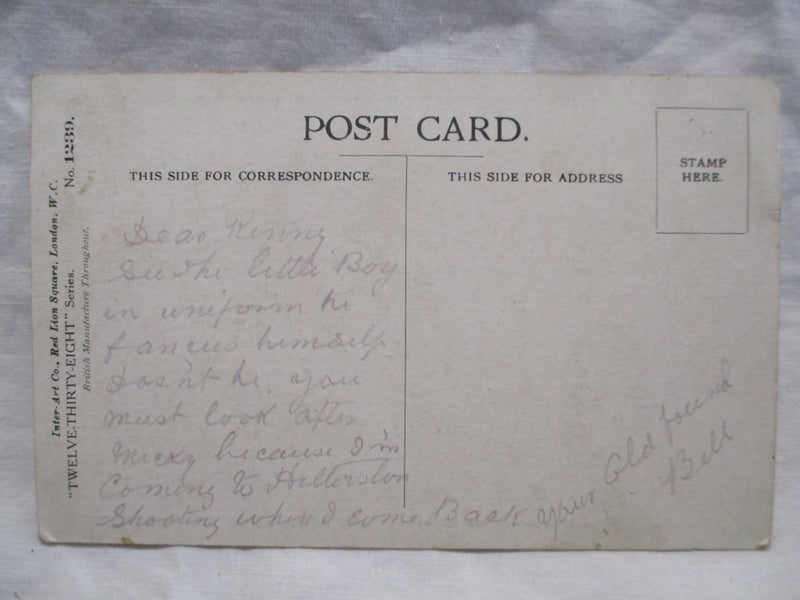 POST CARD.
THIS SIDE FOR CORRESPONDENCE.
THIS SIDE FOR ADDRESS
STAMP
HERE.
Inter-Art Co., Red Lion Square, London, W.C.
"TWELVE-THIRTY-EIGHT" Series. No. 1239.
British Manufacture Throughout.
Dear Kenny
See the little Boy
in uniform he
fancies himself
dosn't he. you
must look after
Micky because I'm
Coming to
Shooting when I come Back
your Old friend
Bill